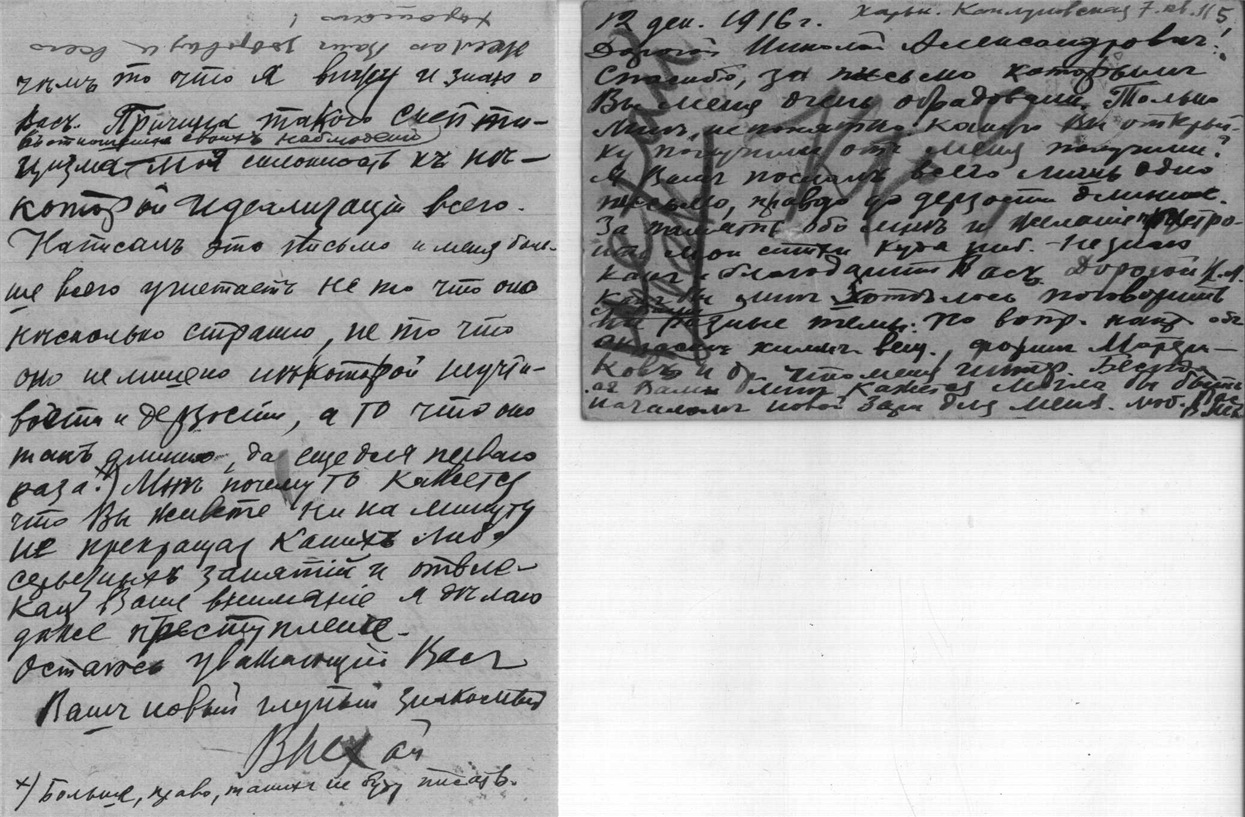 Желаю Вамъ здоровья и всего
хорошаго!
чѣмъ то что я вижу и знаю о
Васъ. Причина такого скепти-
въ отношеніи своихъ наблюденій
цизма моя склонность къ нѣ-
которой идеализаціи всего.
Написалъ это письмо и меня боль-
ше всего угнетаетъ не то что оно
нѣсколько странно, не то что
оно не лишено нѣкоторой неучти-
вости и дерзости, а то что оно
такъ длинно, да еще для перваго
раза. х) Мнѣ почему то кажется
что Вы живете ни на минуту
не прекращая какихъ либо
серьезныхъ занятій и отвле-
кая Ваше вниманіе я дѣлаю
даже преступленіе.
Остаюсь уважающій Васъ
Вашъ новый глупый знакомый
х) Больше, право, такихъ не буду писать.
12 дек. 1916 г. Харьк. Каплуновская 7. кв. 5
Дорогой Николай Александровичъ!
Спасибо, за письмо которымъ
Вы меня очень обрадовали. Только
мнѣ, непонятно какую Вы открыт-
ку получили отъ меня получили?
Я Вамъ послалъ всего лишь одно
письмо, правда до дерзости длинное.
За память обо мнѣ и желаніе
мои стихи куда ниб. не знаю
какъ и благодарить Васъ. Дорогой Н. А.
какъ бы мнѣ хотѣлось поговорить
на разные темы: по вопр. наст.
химич. вещ., форм Марзи-
ковъ и др. что меня интер. Бесѣда
съ Вами мнѣ кажется могла бы быть
началомъ новой зари для меня. люб. Васъ